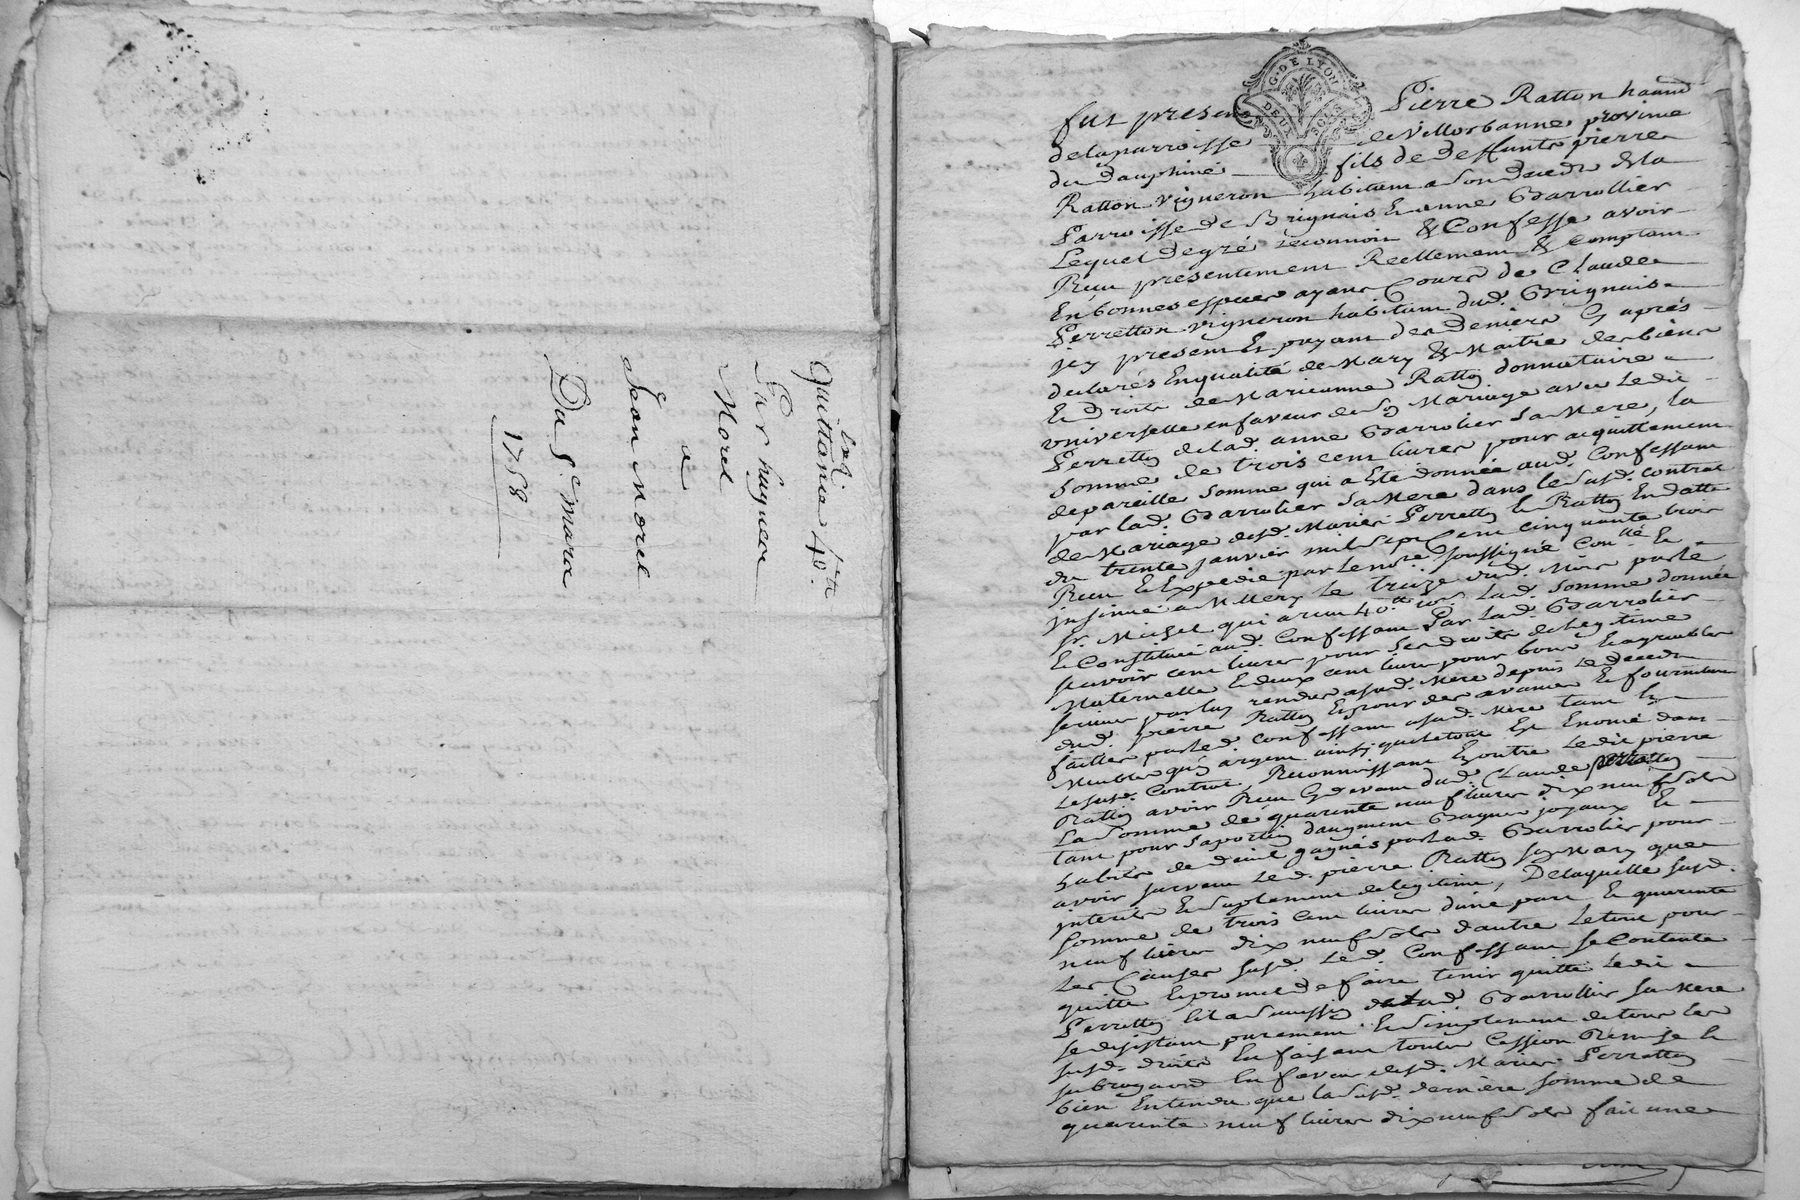 Quittance 40.tt
Par hugues
Morel
a
Jean Morel
Du 5.e mars
1758
G. DE LYON
DEUX SOLS
fut present Pierre Ratton habit
de la parroisse de Villorbanne province
du dauphiné fils de deffunts pierre
Ratton vigneron habitant a son deceds de la
Parroisse de Brignais & anne Barrollier
Lequel de gré reconnoit & Confesse avoir
Reçu presentement Reellement & Comptant
En bonnes especes ayant Cours de Claude
Perretton vigneron habitant dud. Brignais
icy present & payant des deniers cy aprés
declarés En qualité de Mary & Maitre des biens
& droits de Marieanne Ratton donnataire
universelle en faveur de son Mariage avec ledit
Perretton de lad. anne Barrolier sa Mere, la
Somme de trois cent livres pour acquittement
de pareille Somme qui a Eté donnée aud. Confessant
par lad. Barrolier sa Mere dans le susd. Contrat
de Mariage desd. Mariés Perretton & Ratton En datte
du trente janvier mil sept cent cinquante trois
Reçu & Expedié par le no.re soussigné Con.llé &
insinué a Millery le treize dud. Mois par le
Sr. Michel qui a reçu 40.tt lad. Somme donnée
& Constituée aud. Confessant Par lad. Barrolier
sçavoir cent livres pour ses droits de legitime
Maternelle & deux cent livres pour bons & agreables
services par luy rendus a sad. Mere depuis le deceds
dud. pierre Ratton & pour des avances & fournitures
faittes par led. Confessant a sad. Mere tant En
Meubles qu'en argent ainsy que le tout Est Enoncé dans
le susd. Contrat, Reconnoissant En outre ledit pierre
Ratton avoir Reçu Cy devant dud. Claude perretton
La Somme de quarante neuf livres dix neuf sols
tant pour sa portion d'augment Bagues joyaux &
habits de deuil gagnés par lad. Barrolier pour
avoir survecu led. pierre Ratton son Mary que
interets & suplement de legitime, De laquelle susd.
Somme de trois cent livres d'une part & quarante
neuf livres dix neuf sols d'autre le tout pour
Les Causes susd. led. Confessant se Contente
quitte & promet de faire tenir quitte ledit
Perretton lad. Barrollier sa Mere
se desistant purement & simplement de tous les
susd. droits En faisant toutes Cession Remise &
subrogation En faveur desd. Mariés Perretton
bien Entendu que la susd. derniere somme de
quarante neuf livres dix neuf sols fait une